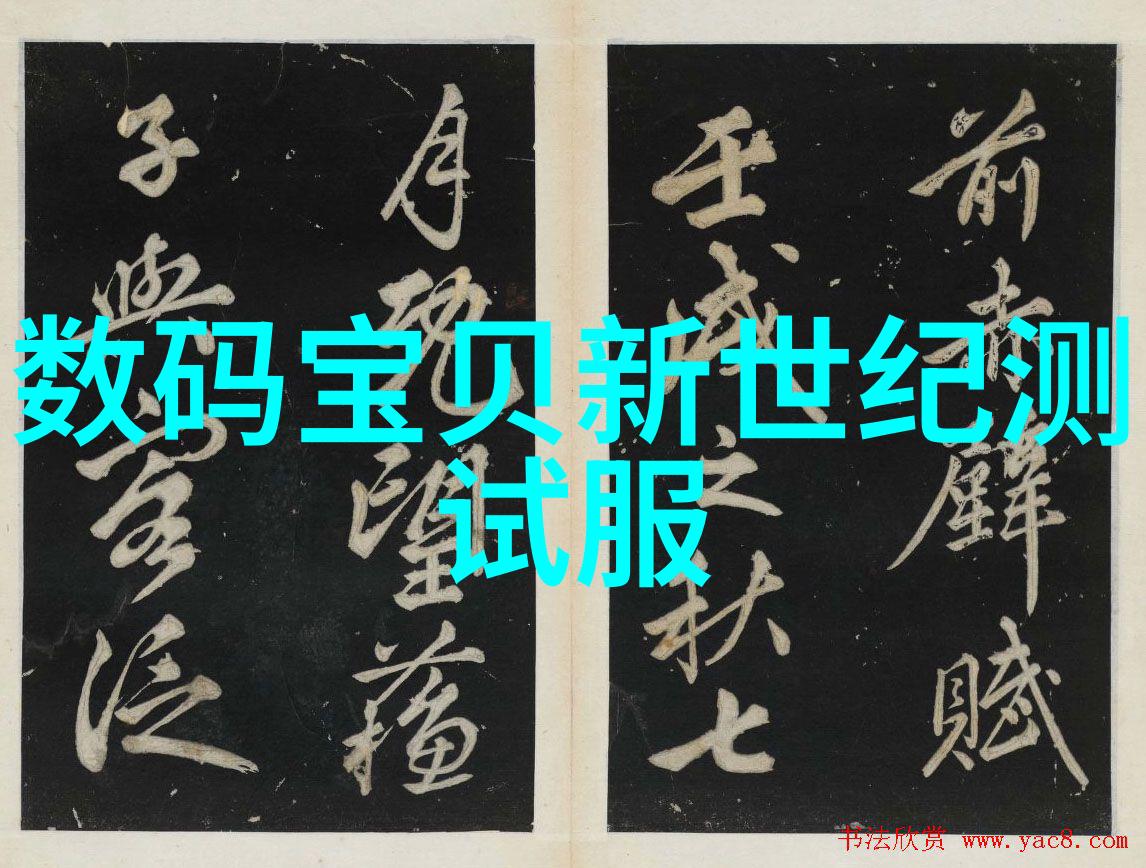 前赤壁賦
壬戌之秋七
月既望蘓
子與客泛
数码宝贝新世纪测
试服
书法欣赏 www.yac8.com